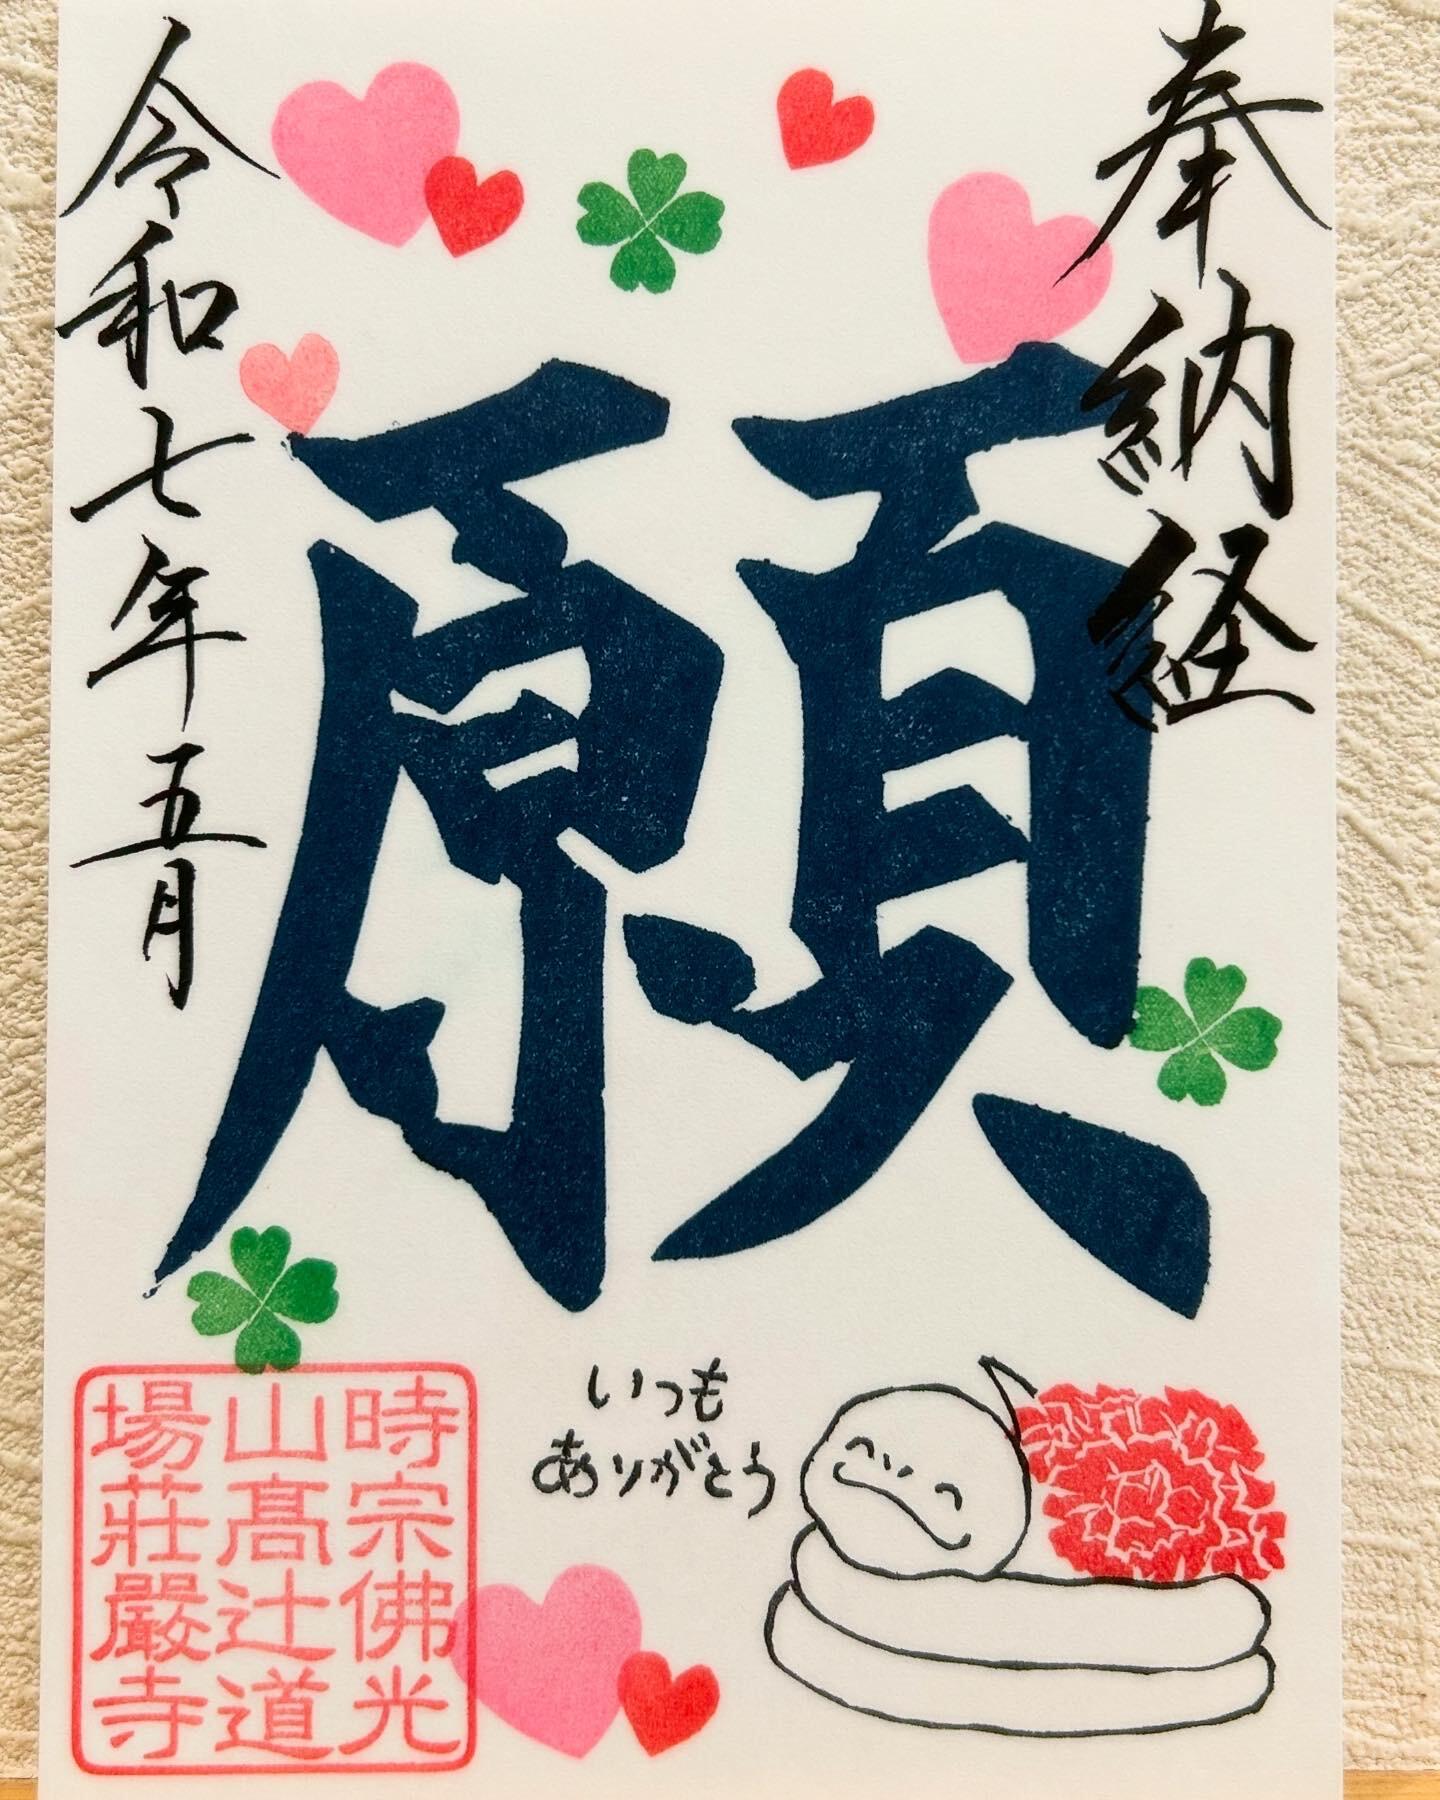 奉納経
願
令和七年五月
いつも
ありがとう
時宗佛光
山髙辻道
場莊嚴寺